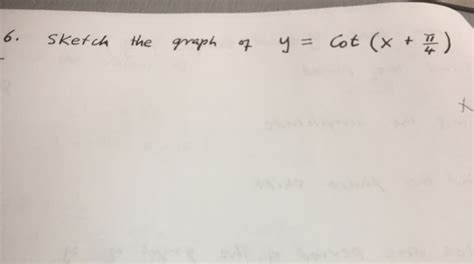 6. Sketch the graph of y = Cot (x + π/4)
x